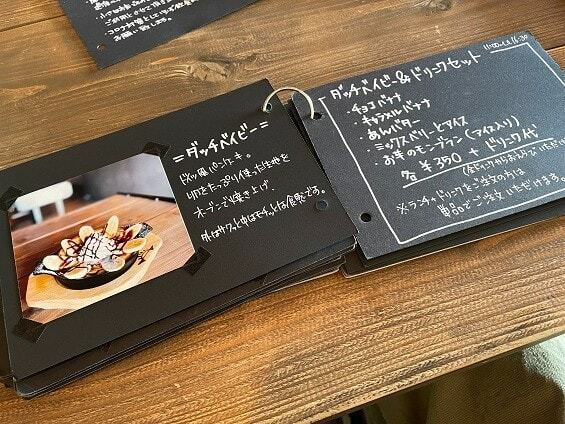 コロナ対策と
お願い致します。
=ダッチベイビー=
ドイツ風パンケーキ。
卵をたっぷり使った生地を
オーブンで焼き上げ、
外はサクッと中はモチッとな食感です。
11:00〜L.O 16:30
ダッチベイビー&ドリンクセット
・チョコバナナ
・キャラメルバナナ
・あんバター
・ミックスベリーとアイス
・お芋のモンブラン(アイス入り)
各 ¥350 + ドリンク代
※ランチ、ドリンクをご注文の方は
単品でご注文いただけます。